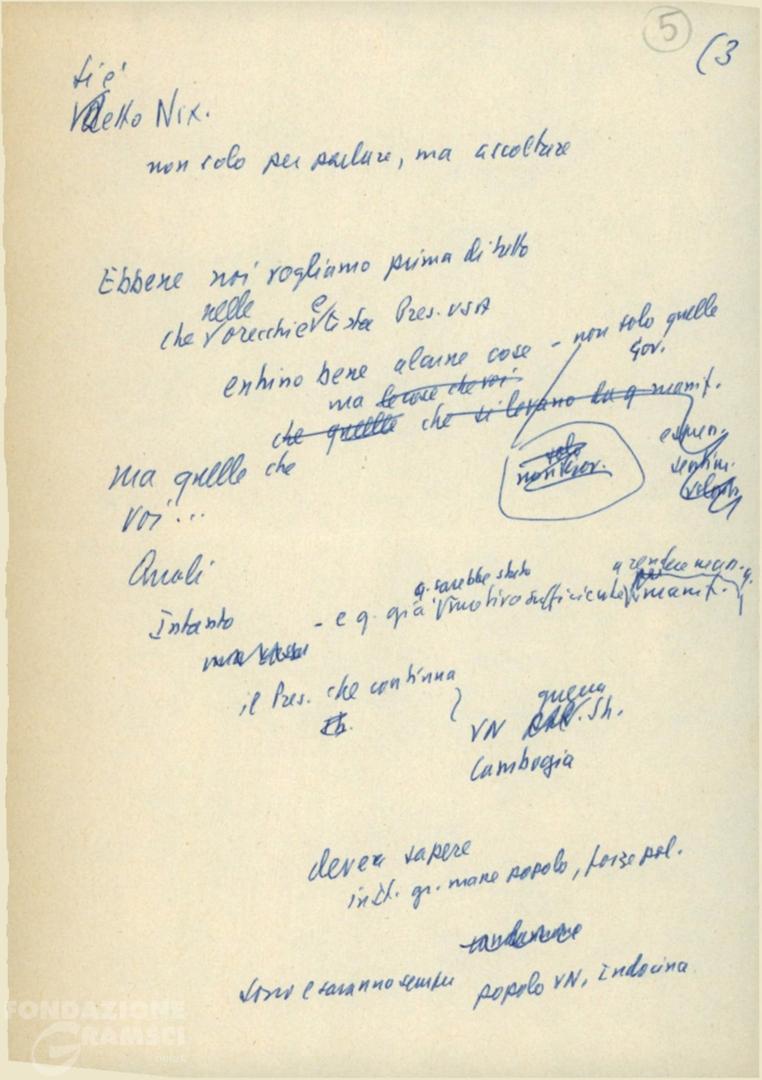 5
(3
si è
detto Nix.
non solo per parlare, ma ascoltare
Ebbene noi vogliamo prima di tutto
che nelle orecchie e testa Pres. USA
entrino bene alcune cose - non solo quelle
Gov.
ma le cose che voi
che quelle che si levano da q. manif.
ma quelle che
voi...
solo
non Gov.
espr.
sentim.
volontà
Quali
Intanto
- e q. già q. sarebbe stato motivo sufficiente a rendere man. q. manif.
il Pres. che continua
VN guerra
Cambogia
deve sapere
in It. gr. mare popolo, forze pol.
condannano
sono e saranno sempre popolo VN, Indocina
FONDAZIONE
GRAMSCI